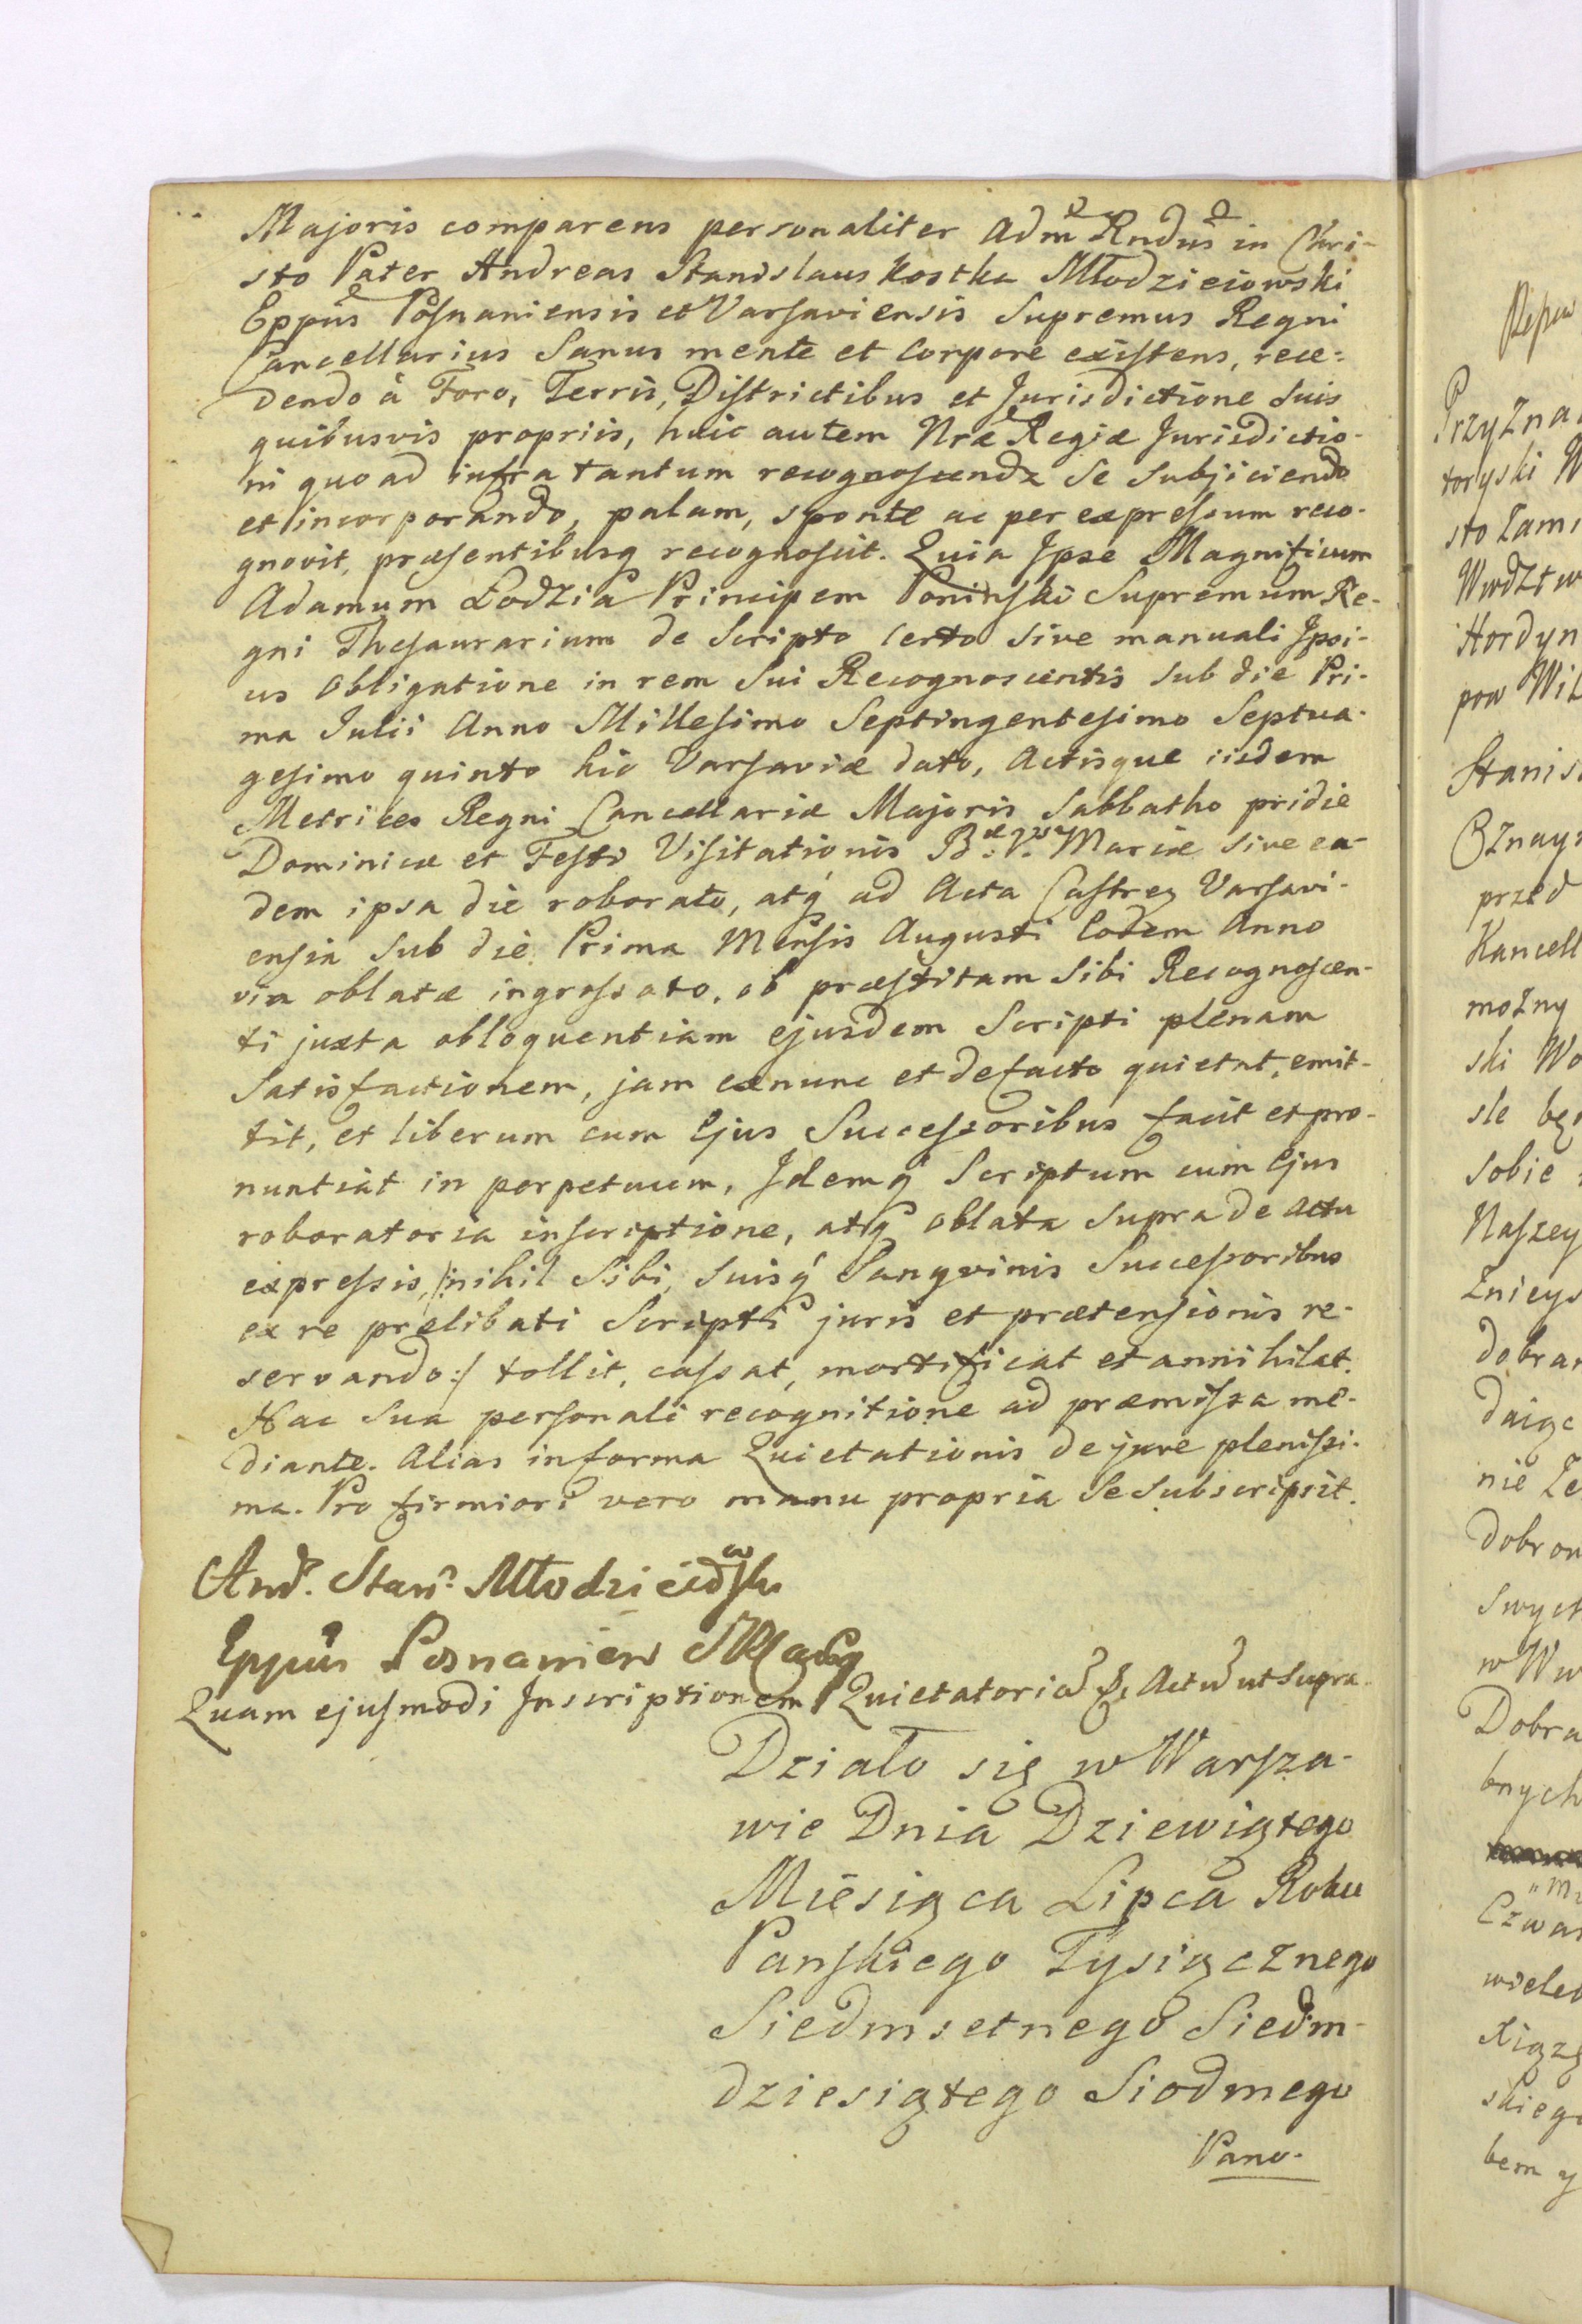 Majoris comparens personaliter Adm Rndus in Chri-
sto Pater Andreas Stanislaus Kostka Młodzieiowski
Eppus Posnaniensis et Varsaviensis Supremus Regni
Cancellarius Sanus mente et Corpore existens, rece-
dendo à Foro, Terris, Districtibus et Jurisdictione suis
quibusvis propriis, huic autem Nræ Regiæ Jurisdictio-
ni quo ad infra tantum recognoscenda se subjiciendo
et incorporando, palam, sponte ac per expressum reco-
gnovit, præsentibusq recognoscit. Quia Ipse Magnificum
Adamum Łodzia Principem Poninski Supremum Re-
gni Thesaurarium de Scripto Certo sive manuali Ipsi-
us Obligatione in rem Sui Recognoscentis sub die Pri-
ma Julii Anno Millesimo Septingentesimo Septua-
gesimo quinto hic Varsaviæ dato, Actisque iisdem
Metrices Regni Cancellariæ Majoris Sabbatho pridie
Dominicæ et Festi Visitationis B: V. Mariæ sive ea-
dem ipsa die roborato, atq ad Acta Castren Varsavi-
ensia sub die Prima Mensis Augusti Eodem Anno
via oblatæ ingrossato, ob præstitam sibi Recognoscen-
ti juxta obloquentiam ejusdem Scripti plenam
Satisfactionem, jam exnunc et defacto quietat, emit-
tit, et liberum cum Ejus Successoribus facit et pro-
nuntiat in perpetuum, Idemq Scriptum cum Ejus
roboratoria inscriptione, atq oblata supra de Actu
expressis, /:nihil Sibi, Suisq Sangvinis Successoribus
ex re prælibati Scripti juris et prætensionis re-
servando:/ tollit, cassat, mortificat et annihilat.
Hac Sua personali recognitione ad præmissa me-
diante. Alias in forma Quietationis de jure plenissi-
ma. Pro firmiori vero manu propria se subscripsit.
And. Stan. Młodzieiowski
Eppus Posnanien
Quam ejusmodi Inscriptionem Quietatoriam Actum ut supra
Działo się w Warsza-
wie Dnia Dziewiątego
Miesiąca Lipca Roku
Panskiego Tysiącznego
Siedmsetnego Siedm-
dziesiątego Siodmego
Pano-